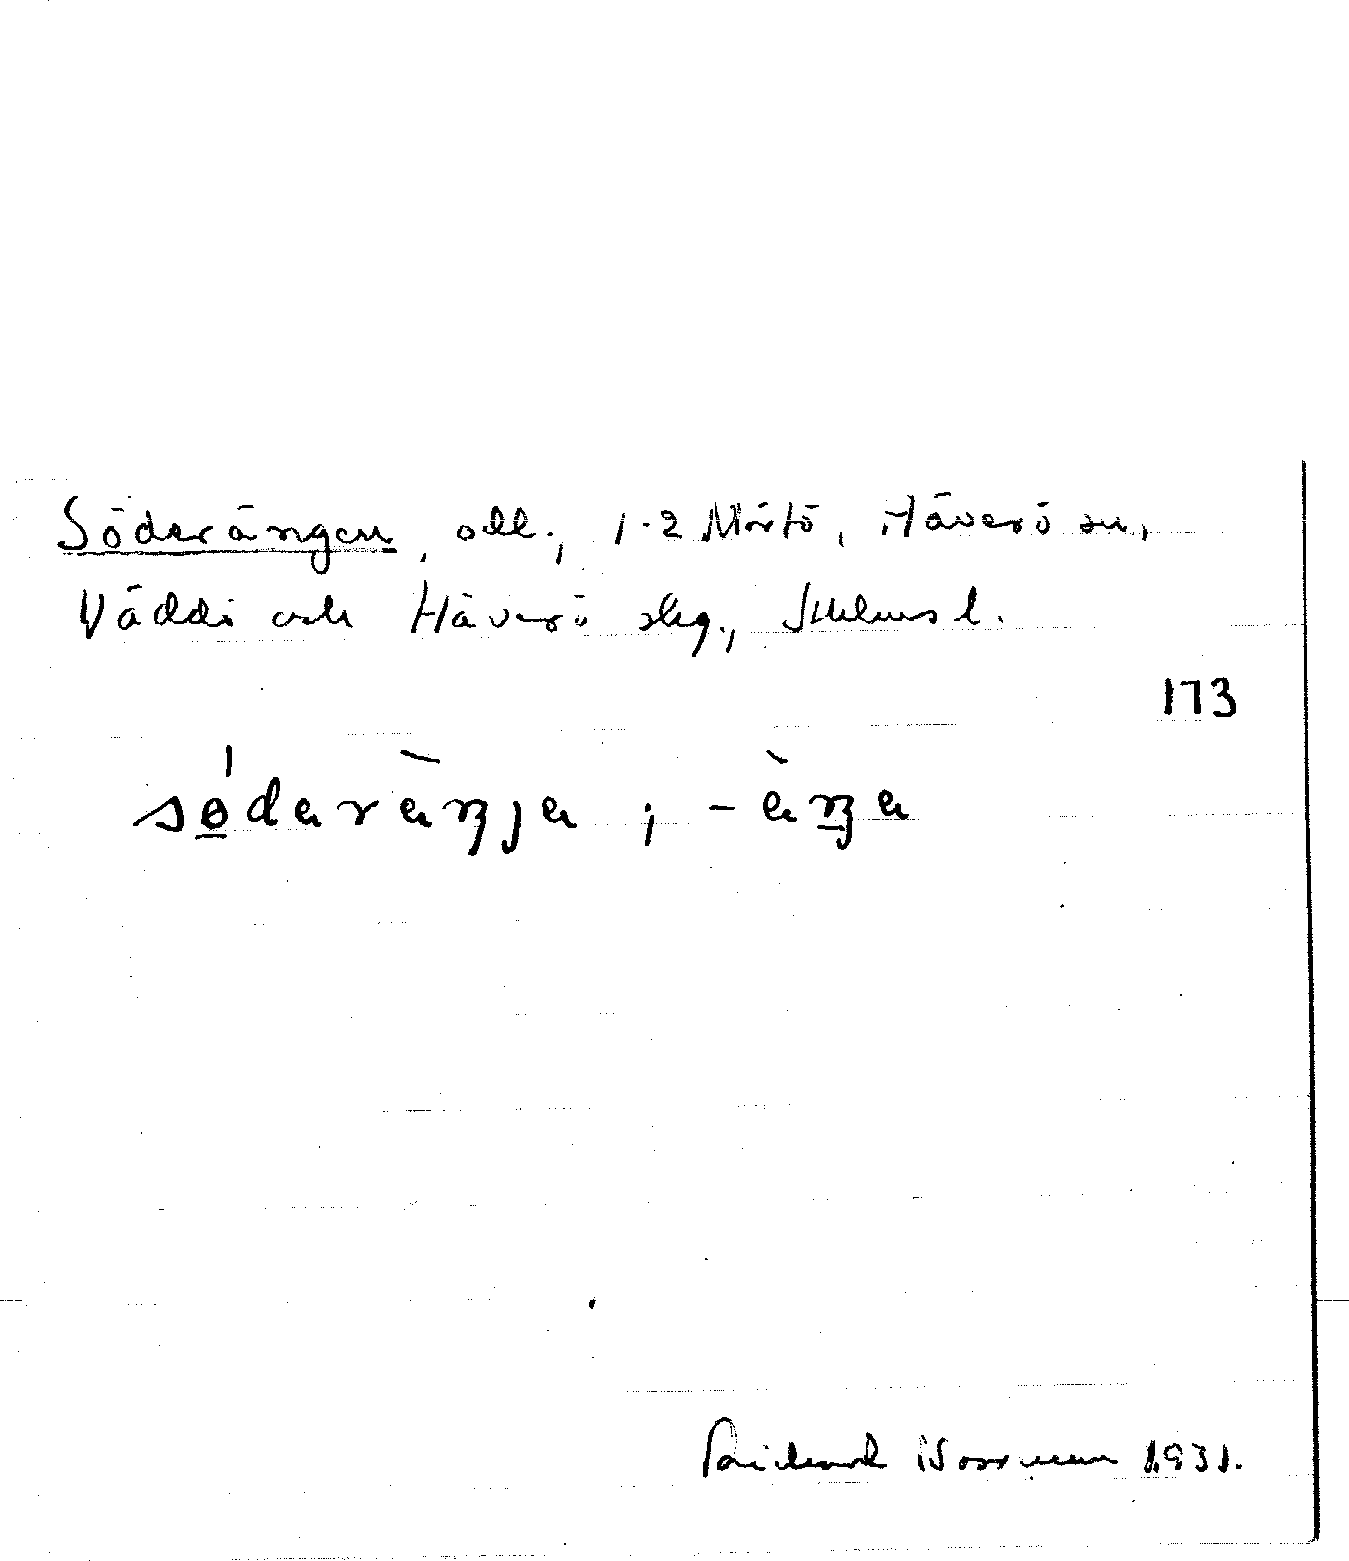 Söderängen, odl., 1-2 Mörtö, Häverö sn,
Väddö och Häverö skg., Sthlms l.
173
sødɐrɐ̀ŋjɐ ; -ɐ̀ŋɐ
Richard Norrman 1931.